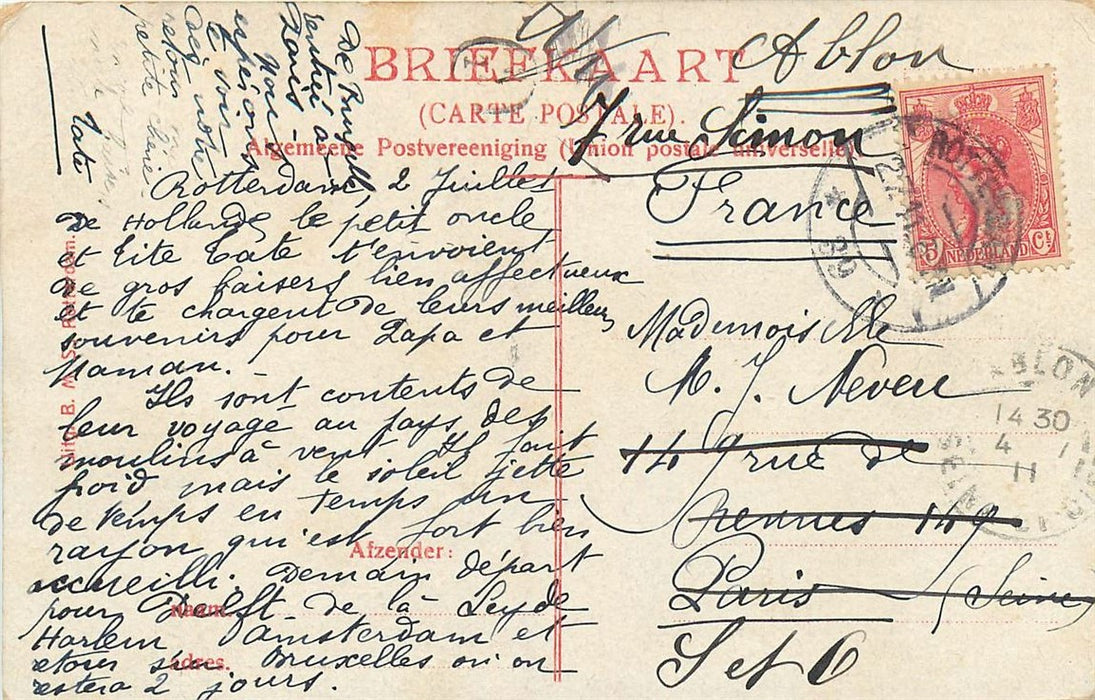 BRIEFKAART
(CARTE POSTALE).
Algemeene Postvereeniging (Union postale universelle).
Rotterdam, 2 Juillet
De Hollande le petit oncle
et Tite Tate t'envoient
de gros baisers bien affectueux
et te chargent de leurs meilleurs
souvenirs pour Papa et
Maman.
Ils sont contents de
leur voyage au pays des
moulins à vent. Il fait
froid mais le soleil jette
de temps en temps un
rayon qui est fort bien
accueilli. Demain départ
pour Delft de là Leyde
Harlem Amsterdam et
retour sur Bruxelles où on
restera 2 jours.
De Bruxelles
rentrée à
Paris -
nous
espérons
te voir
dès notre
retour
petite chérie
Tate
Afzender:
naam
adres.
Ablon
7 rue Simon
France
Mademoiselle
M. J. Neveu
149 rue de
Rennes 149
Paris (Seine)
S et O
5 Ct
NEDERLAND
ABLON
14 30
4
11